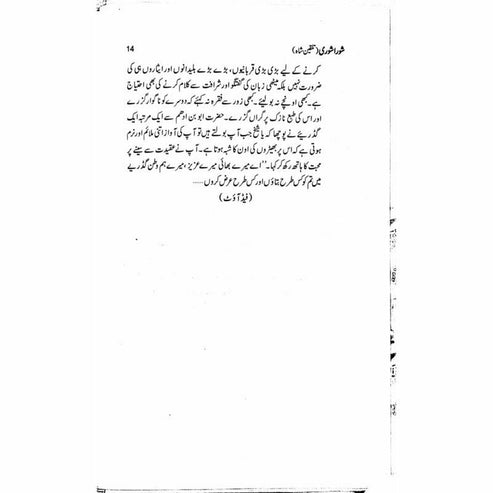 شورا شوری (تلقین شاہ) 14
کرنے کے لیے بڑی بڑی قربانیوں، بڑے بڑے بلیدانوں اور ایثاروں ہی کی
ضرورت نہیں بلکہ میٹھی زبان کی گفتگو اور شرافت سے کلام کرنے کی بھی احتیاج
ہے۔ کبھی اونچے نہ بولیے۔ کبھی زور سے فقرہ نہ کہئے کہ دوسرے کو ناگوار گزرے
اور اس کی طبع نازک پر گراں گزرے۔ حضرت ابو بن ادھم سے ایک مرتبہ ایک
گڈریئے نے پوچھا کہ یا شیخ جب آپ بولتے ہیں تو آپ کی آواز اتنی ملائم اور نرم
ہوتی ہے کہ اس پر بھیڑوں کی اون کا شبہ ہوتا ہے۔ آپ نے عقیدت سے سینے پر
محبت کا ہاتھ رکھ کر کہا۔ ’’اے میرے بھائی میرے عزیز، میرے ہم وطن گڈریے
میں تم کو کس طرح بتاؤں اور کس طرح عرض کروں ……
(فیڈ آؤٹ)